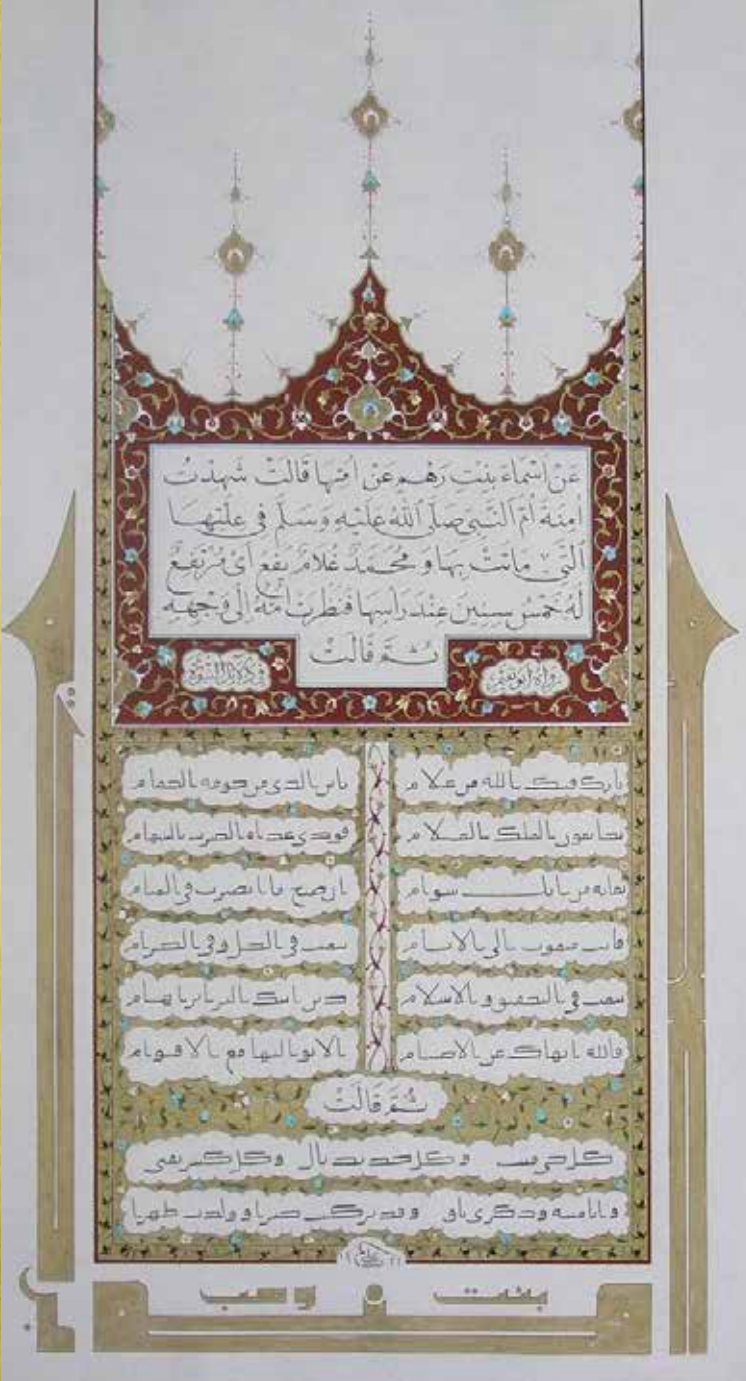 عَنْ اَسْمَاءَ بِنْتِ رَهْمٍ عَنْ اُمِّهَا قَالَتْ شَهِدْتُ
اٰمِنَةَ اُمَّ النَّبِيِّ صَلَّى اللّٰهُ عَلَيْهِ وَسَلَّمَ فِي عِلَّتِهَا
الَّتِي مَاتَتْ بِهَا وَمُحَمَّدٌ غُلَامٌ يَفَعٌ اَىْ مُرْتَفِعٌ
لَهُ خَمْسُ سِنِينَ عِنْدَ رَأْسِهَا فَنَظَرَتْ اُمُّهُ اِلَى وَجْهِهِ
ثُمَّ قَالَتْ
رواه ابو نعيم في دلائل النبوة
بارك فيك الله من غلام يا ابن الذي من حومة الحمام
نجا بعون الملك العلام فودي غداة الضرب بالسهام
بمائة من ابل سوام ان صح ما ابصرت في المنام
فانت مبعوث الى الانام تبعث في الحل وفي الحرام
تبعث في التحقيق والاسلام دين ابيك البر ابراهام
فالله انهاك عن الاصنام ان لا تواليها مع الاقوام
ثُمَّ قَالَتْ
كل حي ميت وكل جديد بال وكل كبير يفنى
وانا ميتة وذكري باق وقد تركت خيرا وولدت طهرا
بنت وهب